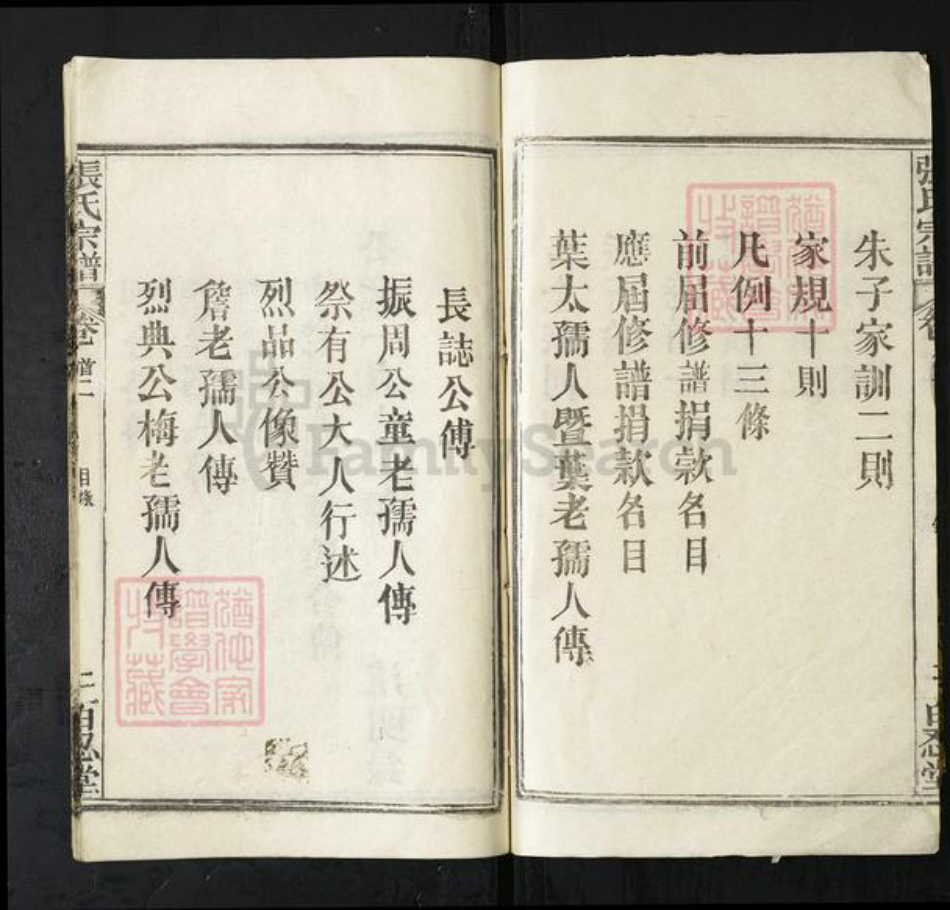 朱子家訓二則
家規十則
凡例十三條
前屆修譜捐款名目
應屆修譜捐款名目
葉太孺人暨葉老孺人傳
張氏宗譜
百忍堂
長誌公傳
振周公童老孺人傳
祭有公大人行述
烈品公像贊
詹老孺人傳
烈典公梅老孺人傳
張氏宗譜 卷首二 目錄 二 百忍堂
猶他家譜學會收藏
猶他家譜學會收藏
FamilySearch